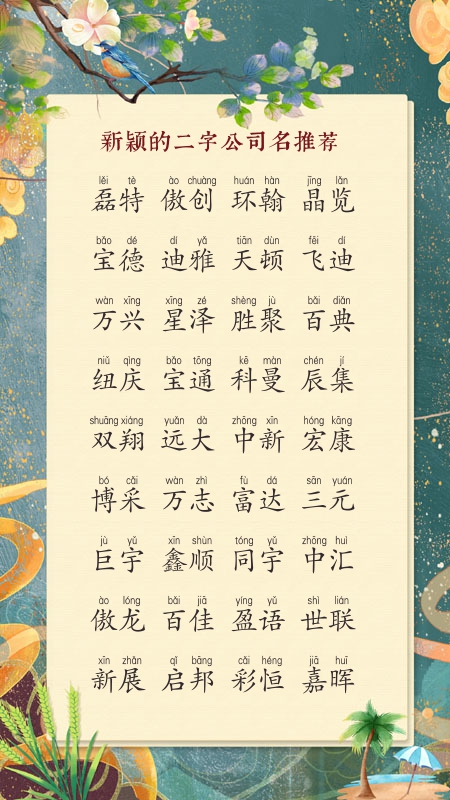 新颖的二字公司名推荐
lěi tè ào chuàng huán hàn jīng lǎn
磊特 傲创 环翰 晶览
bǎo dé dí yǎ tiān dùn fēi dí
宝德 迪雅 天顿 飞迪
wàn xīng xīng zé shèng jù bǎi diǎn
万兴 星泽 胜聚 百典
niǔ qìng bǎo tōng kē màn chén jí
纽庆 宝通 科曼 辰集
shuāng xiáng yuǎn dà zhōng xīn hóng kāng
双翔 远大 中新 宏康
bó cǎi wàn zhì fù dá sān yuán
博采 万志 富达 三元
jù yǔ xīn shùn tóng yǔ zhōng huì
巨宇 鑫顺 同宇 中汇
ào lóng bǎi jiā yíng yǔ shì lián
傲龙 百佳 盈语 世联
xīn zhǎn qǐ bāng cǎi héng jiā huī
新展 启邦 彩恒 嘉晖